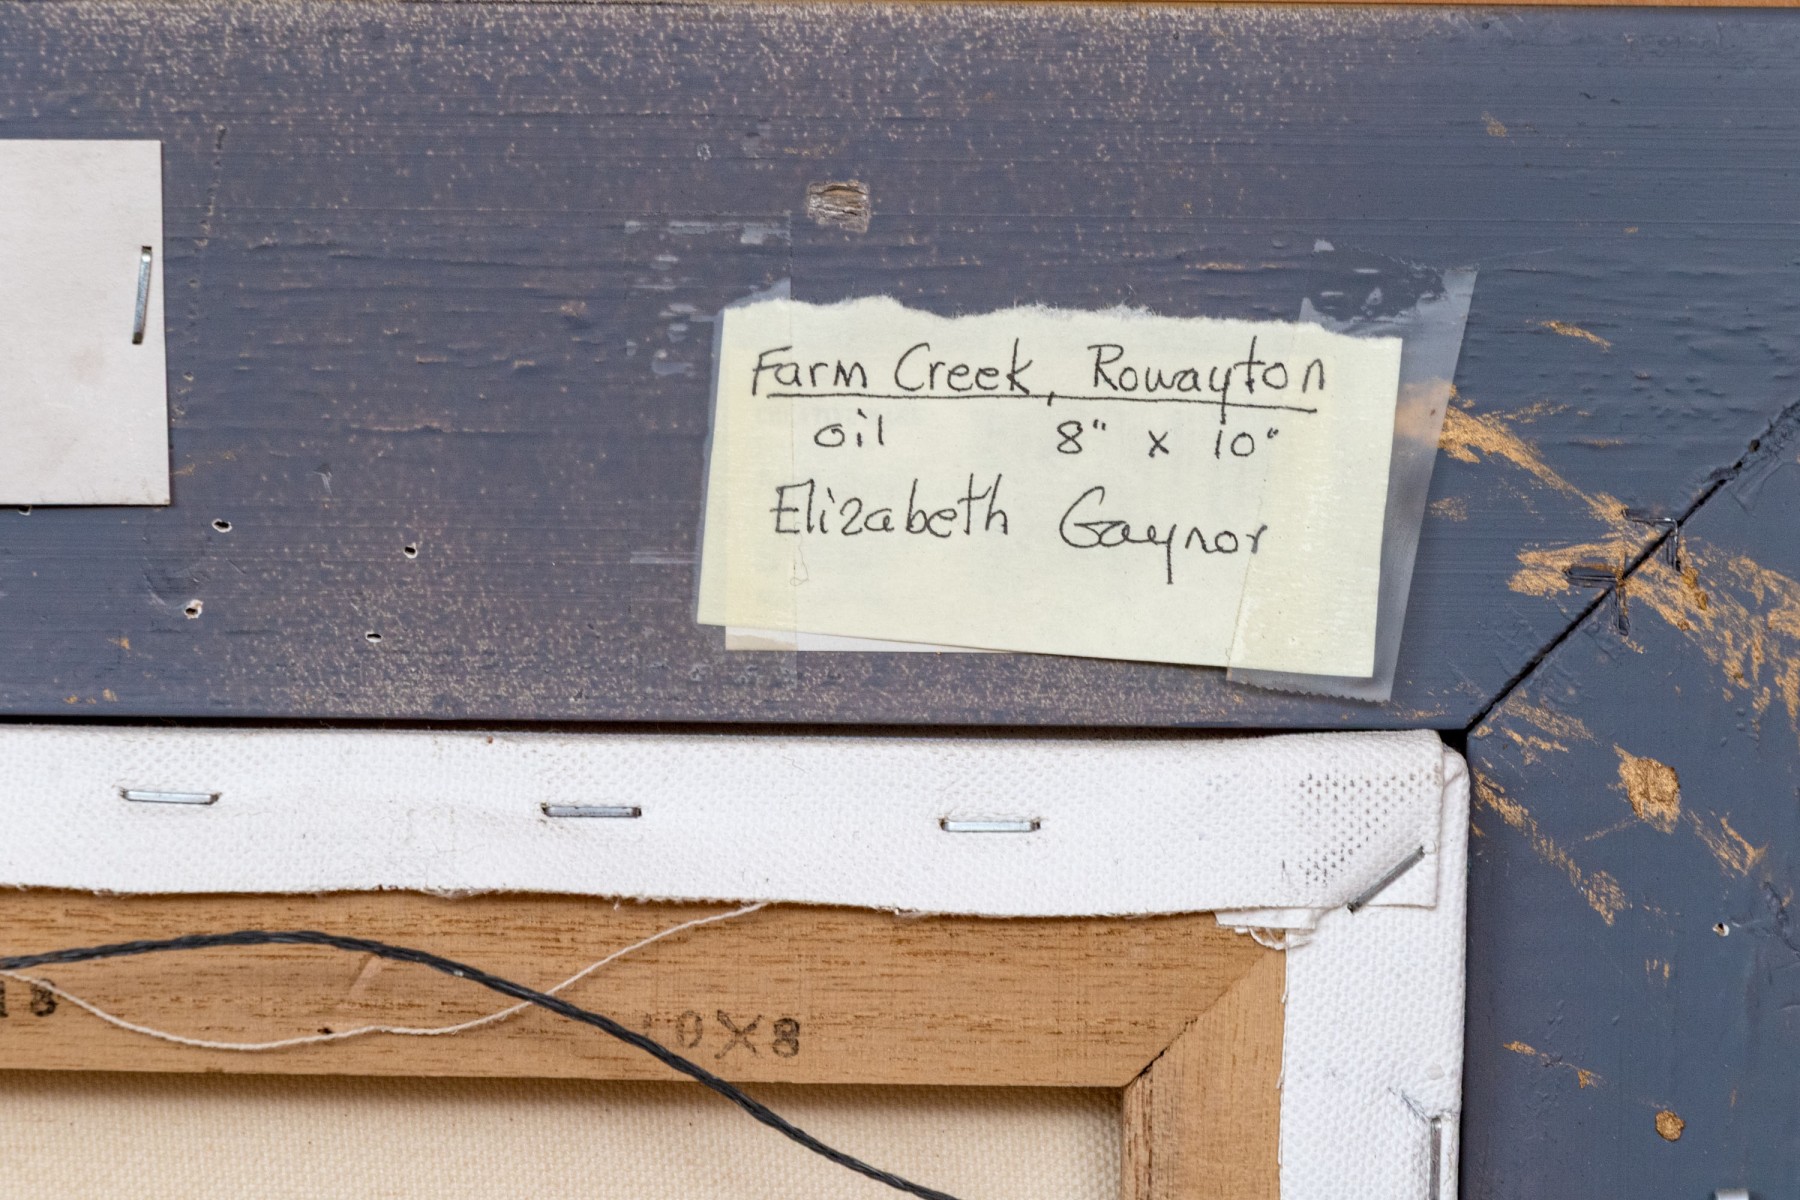 Farm Creek, Rowayton
oil 8" x 10"
Elizabeth Gaynor
10X8